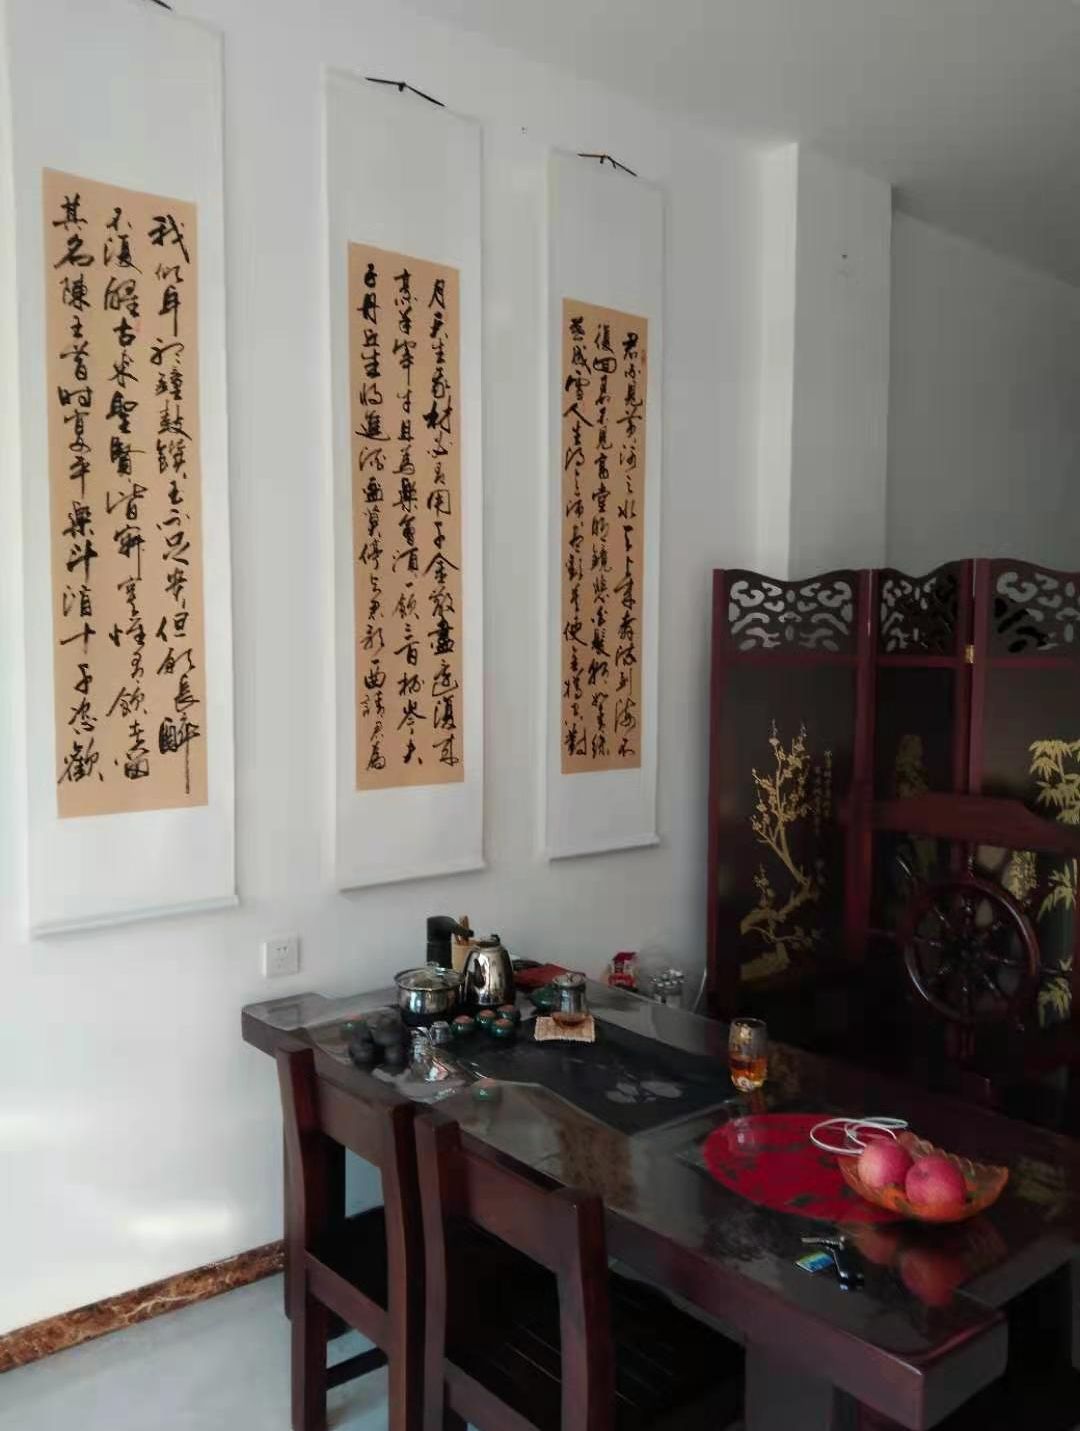 君不見黃河之水天上來奔流到海不
復回君不見高堂明鏡悲白髮朝如青絲
暮成雪人生得意須盡歡莫使金樽空對
月天生我材必有用千金散盡還復來
烹羊宰牛且為樂會須一飲三百杯岑夫
子丹丘生將進酒杯莫停與君歌一曲請君為
我傾耳聽鐘鼓饌玉不足貴但願長醉
不復醒古來聖賢皆寂寞惟有飲者留
其名陳王昔時宴平樂斗酒十千恣歡